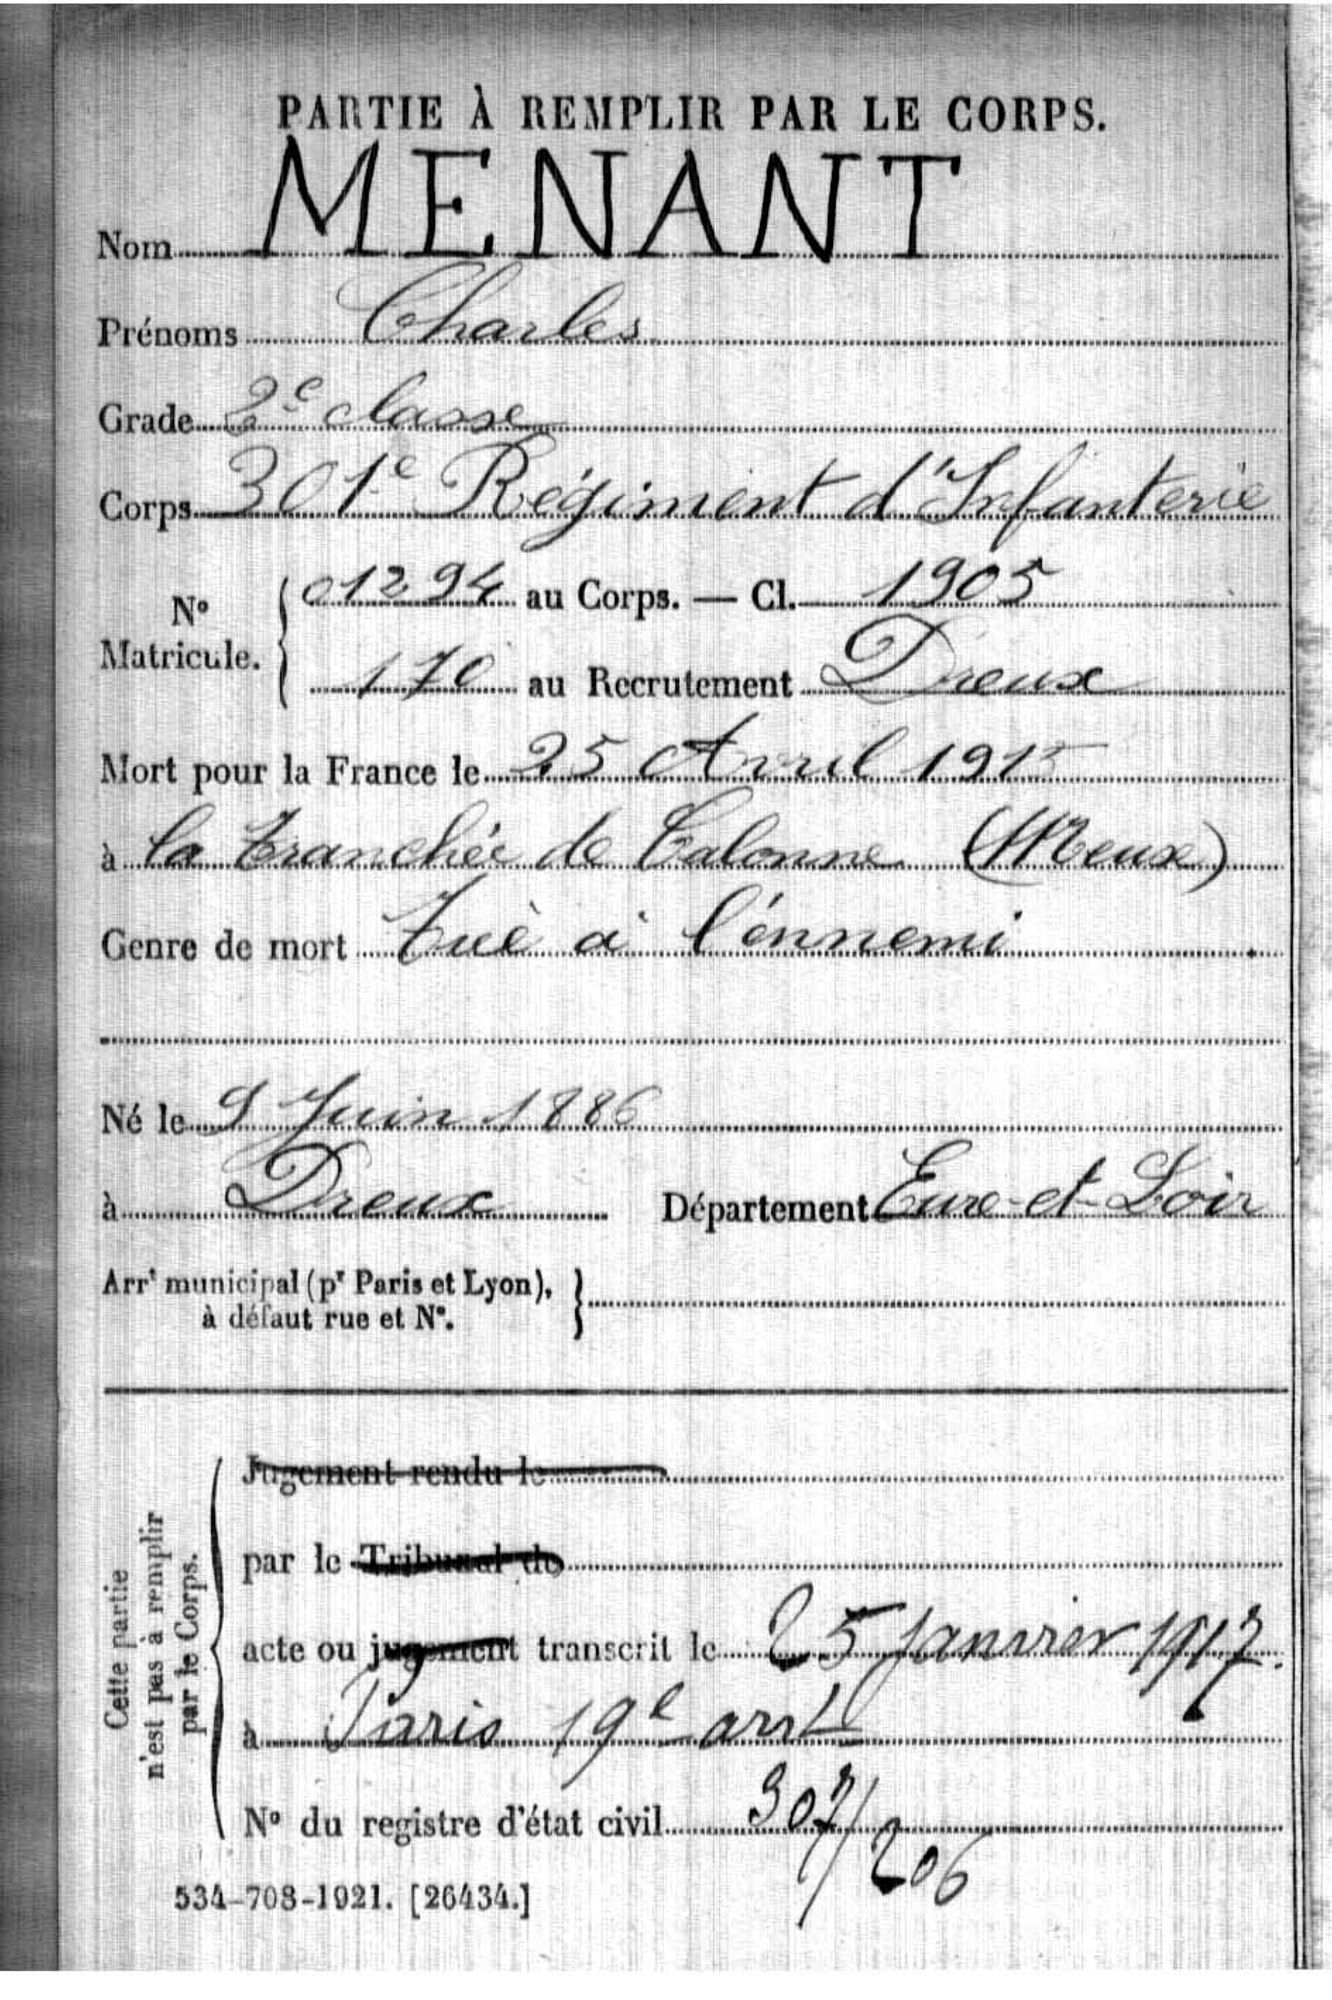 PARTIE À REMPLIR PAR LE CORPS.
Nom MENANT
Prénoms Charles
Grade 2e classe
Corps 301e Régiment d'Infanterie
N° Matricule. { 01294 au Corps. — Cl. 1905
170 au Recrutement Dreux
Mort pour la France le 25 Avril 1915
à la tranchée de Calonne (Meuse)
Genre de mort Tué à l'énnemi
Né le 9 Juin 1886
à Dreux Département Eure-et-Loir
Arrt municipal (pr Paris et Lyon), }
à défaut rue et N°.
Cette partie
n'est pas à remplir
par le Corps.
Jugement rendu le
par le Tribunal de
acte ou jugement transcrit le 25 janvier 1917.
à Paris 19e arrt
N° du registre d'état civil 307/206
534-708-1921. [26434.]